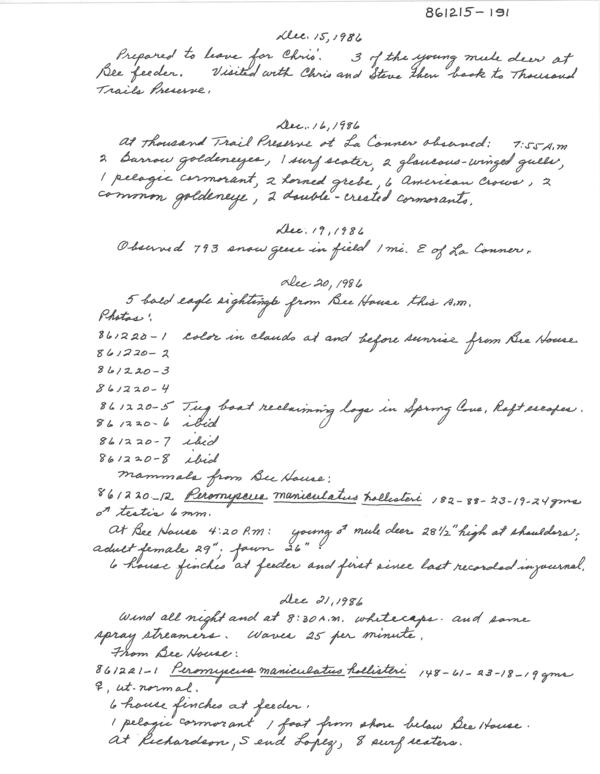 861215-191
Dec. 15, 1986
Prepared to leave for Chris'. 3 of the young mule deer at
Bee feeder. Visited with Chris and Steve then back to Thousand
Trails Preserve.
Dec. 16, 1986
At Thousand Trail Preserve at La Conner observed: 7:55 A.M
2 Barrow goldeneyes, 1 surf scoter, 2 glaucous-winged gulls,
1 pelagic cormorant, 2 horned grebe, 6 American Crows, 2
common goldeneye, 2 double-crested cormorants.
Dec. 19, 1986
Observed 793 snow geese in field 1 mi. E of La Conner.
Dec 20, 1986
5 bald eagle sightings from Bee House this A.m.
Photos:
861220-1 color in clouds at and before sunrise from Bee House
861220-2
861220-3
861220-4
861220-5 Tug boat reclaiming logs in Spring Cove. Raft escapes.
861220-6 ibid
861220-7 ibid
861220-8 ibid
Mammals from Bee House:
861220-12 Peromyscus maniculatus hollisteri 182-88-23-19-24gms
♂ testis 6 mm.
At Bee House 4:20 P.M: young ♂ mule deer 28½" high at shoulders;
adult female 29"; fawn 26".
6 house finches at feeder and first since last recorded in journal.
Dec 21, 1986
Wind all night and at 8:30 A.M. whitecaps and some
spray streamers. Waves 25 per minute.
From Bee House:
861221-1 Peromyscus maniculatus hollisteri 148-61-23-18-19gms
♀, ut. normal.
6 house finches at feeder.
1 pelagic cormorant 1 foot from shore below Bee House.
At Richardson, S end Lopez, 8 surf scoters.